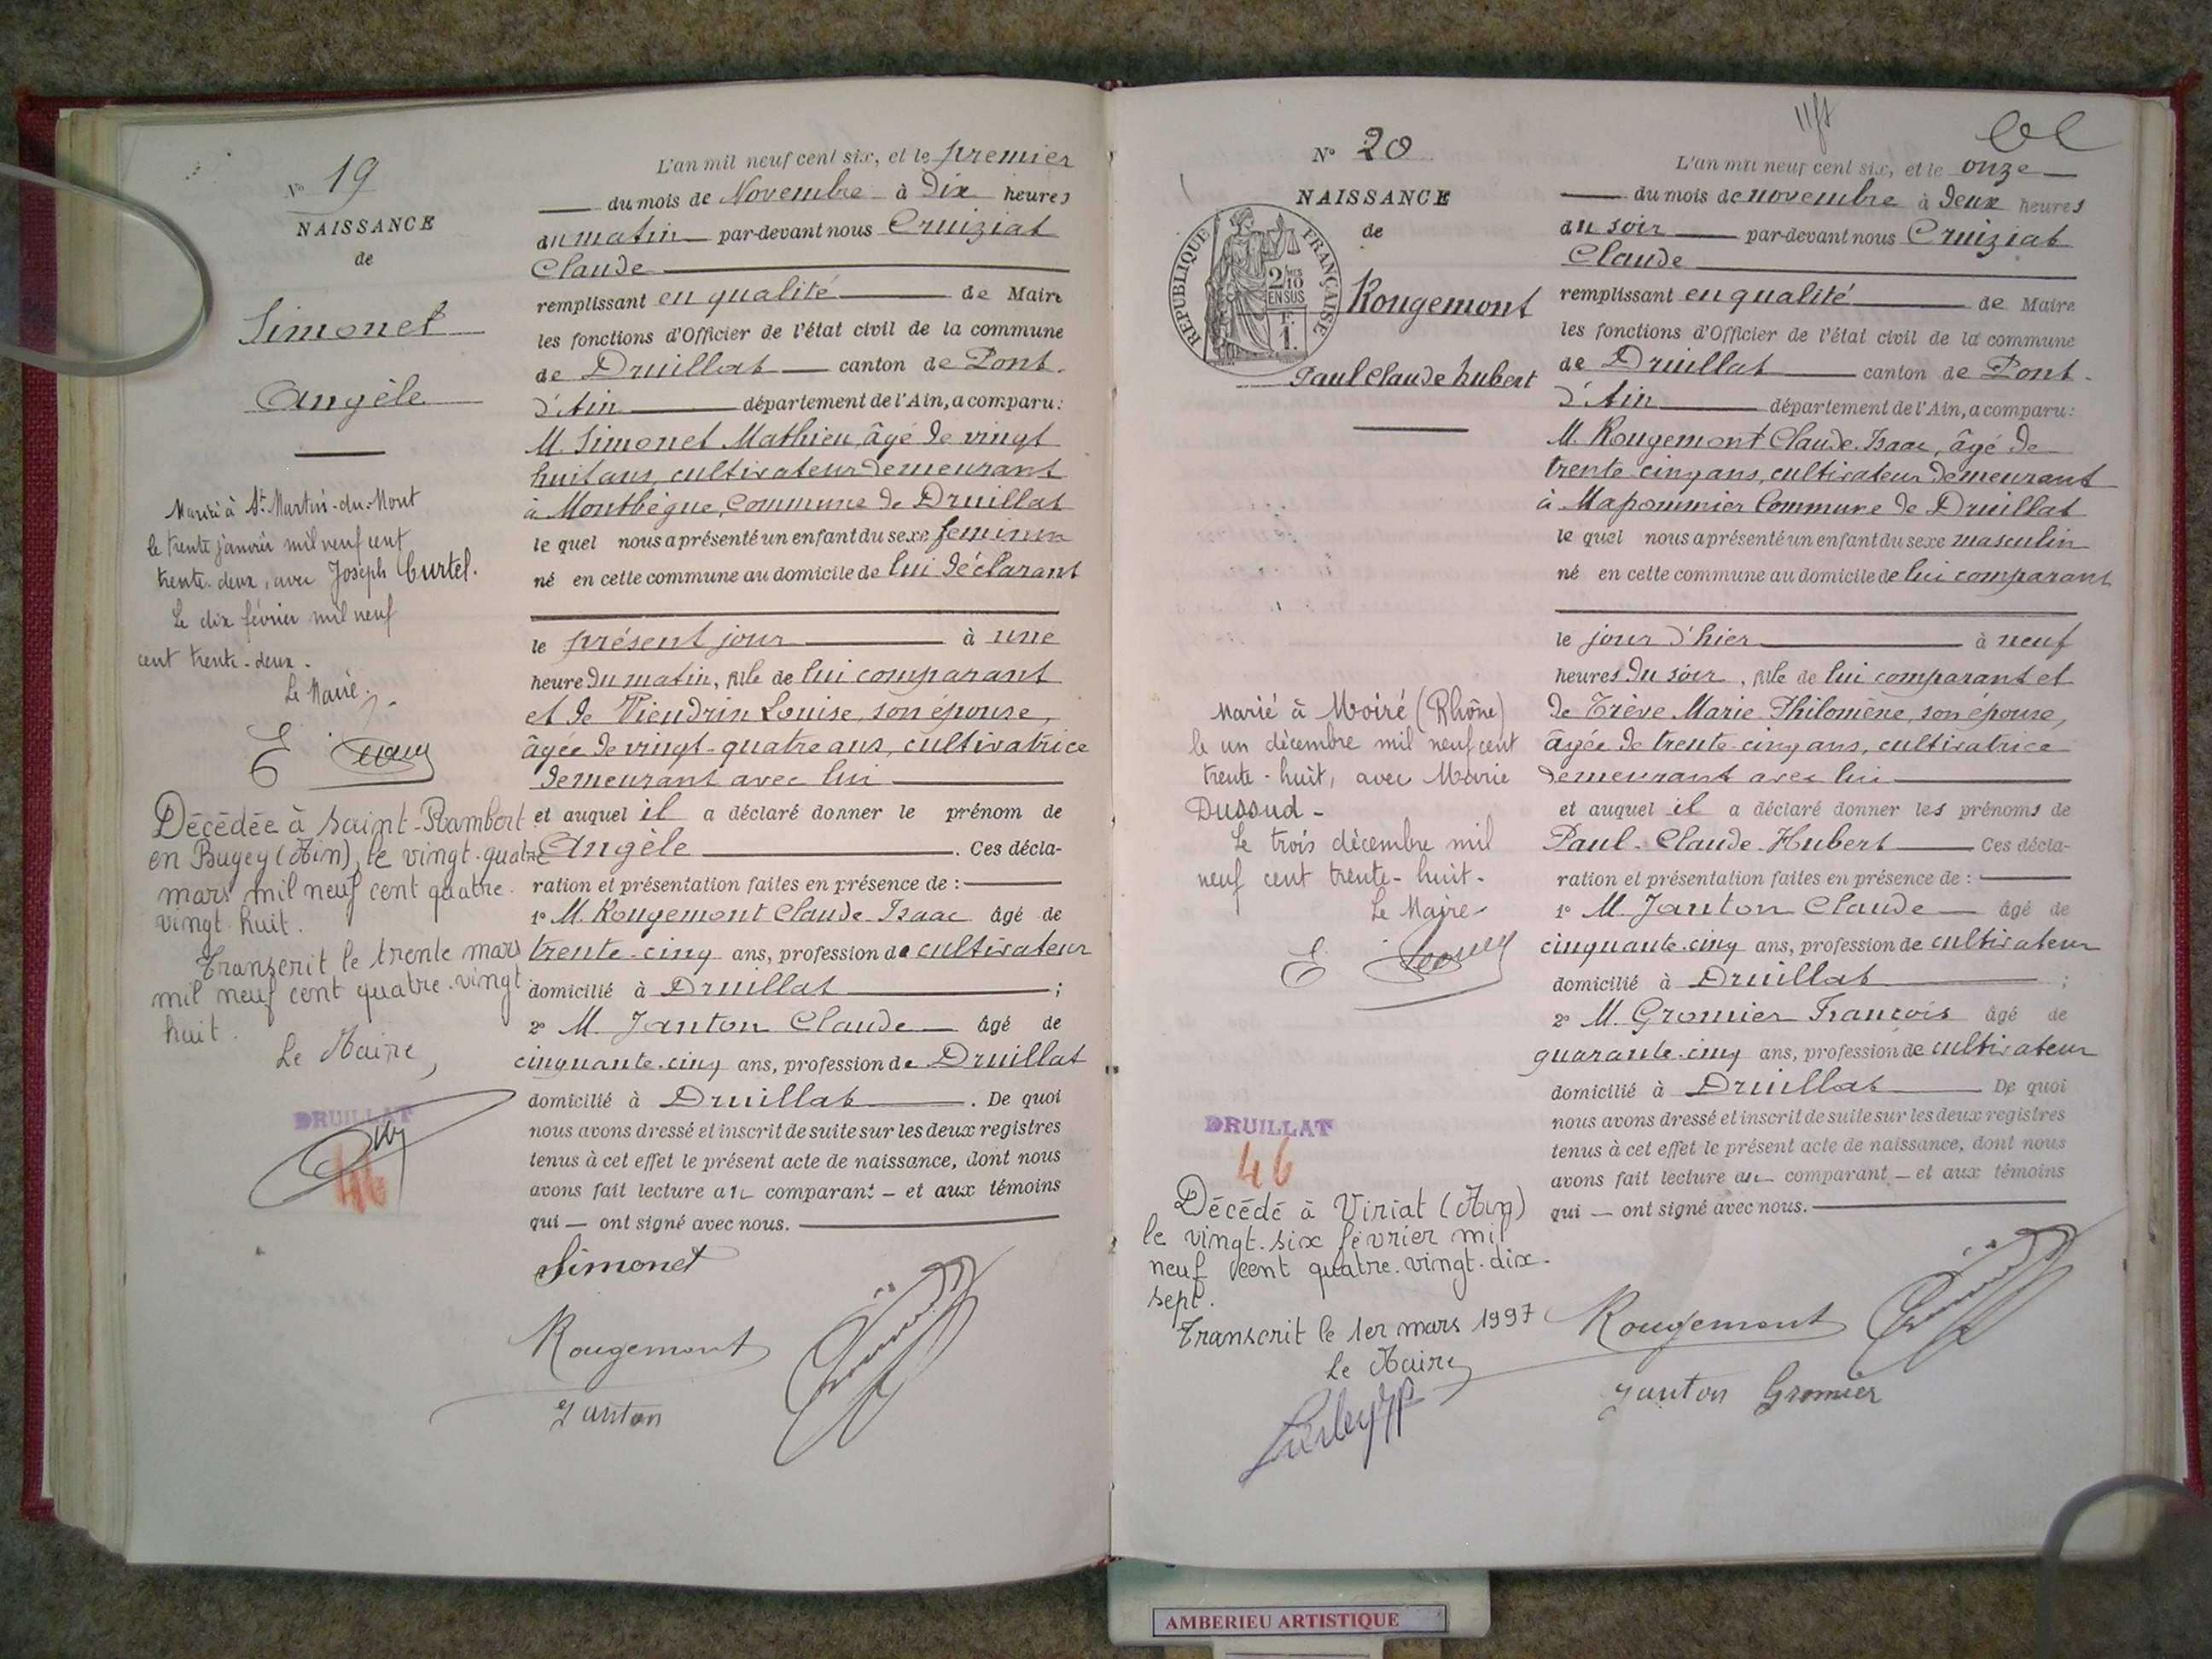 Nº 19
NAISSANCE
de
Simonet
Angèle
Marié à St Martin-du-Mont
le trente janvier mil neuf cent
trente-deux, avec Joseph Curtel.
Le dix février mil neuf
cent trente-deux.
Le Maire,
Décédée à Saint-Rambert
en Bugey (Ain), le vingt-quatre
mars mil neuf cent quatre-
vingt huit.
Transcrit le trente mars
mil neuf cent quatre-vingt
huit.
Le Maire,
DRUILLAT
46
L'an mil neuf cent six, et le premier
du mois de Novembre à Dix heures
du matin par-devant nous Cruiziat
Claude
remplissant en qualité de Maire
les fonctions d'Officier de l'état civil de la commune
de Druillat canton de Pont-
d'Ain département de l'Ain, a comparu:
M. Simonet Mathieu, âgé de vingt
huit ans, cultivateur demeurant
à Montbègue, Commune de Druillat
le quel nous a présenté un enfant du sexe feminin
né en cette commune au domicile de lui déclarant
le présent jour à une
heure du matin, fille de lui comparant
et de Vieudrin Louise, son épouse,
âgée de vingt-quatre ans, cultivatrice
demeurant avec lui
et auquel il a déclaré donner le prénom de
Angèle. Ces décla-
ration et présentation faites en présence de :
1º M. Rougemont Claude-Isaac âgé de
trente-cinq ans, profession de cultivateur
domicilié à Druillat ;
2º M. Janton Claude âgé de
cinquante-cinq ans, profession de Druillat
domicilié à Druillat. De quoi
nous avons dressé et inscrit de suite sur les deux registres
tenus à cet effet le présent acte de naissance, dont nous
avons fait lecture au comparant - et aux témoins
qui — ont signé avec nous.
Simonet
Rougemont
Janton
Nº 20
NAISSANCE
de
RÉPUBLIQUE FRANÇAISE
2/10 EN SUS
F. 1.
Rougemont
Paul Claude hubert
Marié à Moiré (Rhône)
le un décembre mil neuf cent
trente-huit, avec Marie
Dussud -
Le trois décembre mil
neuf cent trente-huit.
Le Maire
DRUILLAT
46
Décédé à Viriat (Ain)
le vingt-six février mil
neuf cent quatre-vingt-dix-
sept.
Transcrit le 1er mars 1997
Le Maire
L'an mil neuf cent six, et le onze
du mois de novembre à deux heures
du soir par-devant nous Cruiziat
Claude
remplissant en qualité de Maire
les fonctions d'Officier de l'état civil de la commune
de Druillat canton de Pont-
d'Ain département de l'Ain, a comparu:
M. Rougemont Claude-Isaac, âgé de
trente-cinq ans, cultivateur demeurant
à Mapommier Commune de Druillat
le quel nous a présenté un enfant du sexe masculin
né en cette commune au domicile de lui comparant
le jour d'hier à neuf
heures du soir, fils de lui comparant et
de Trève Marie-Philomène, son épouse,
âgée de trente-cinq ans, cultivatrice
demeurant avec lui
et auquel il a déclaré donner les prénoms de
Paul-Claude-Hubert Ces décla-
ration et présentation faites en présence de :
1º M. Janton Claude âgé de
cinquante-cinq ans, profession de cultivateur
domicilié à Druillat ;
2º M. Gromier François âgé de
quarante-cinq ans, profession de cultivateur
domicilié à Druillat De quoi
nous avons dressé et inscrit de suite sur les deux registres
tenus à cet effet le présent acte de naissance, dont nous
avons fait lecture au comparant - et aux témoins
qui — ont signé avec nous.
Rougemont
Janton Gromier
AMBERIEU ARTISTIQUE